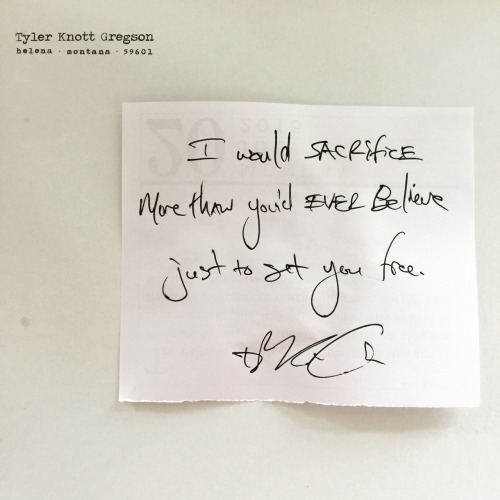 Tyler Knott Gregson
helena · montana · 59601
I would SACRIfICE
More than you'd EVER Believe
just to set you free.